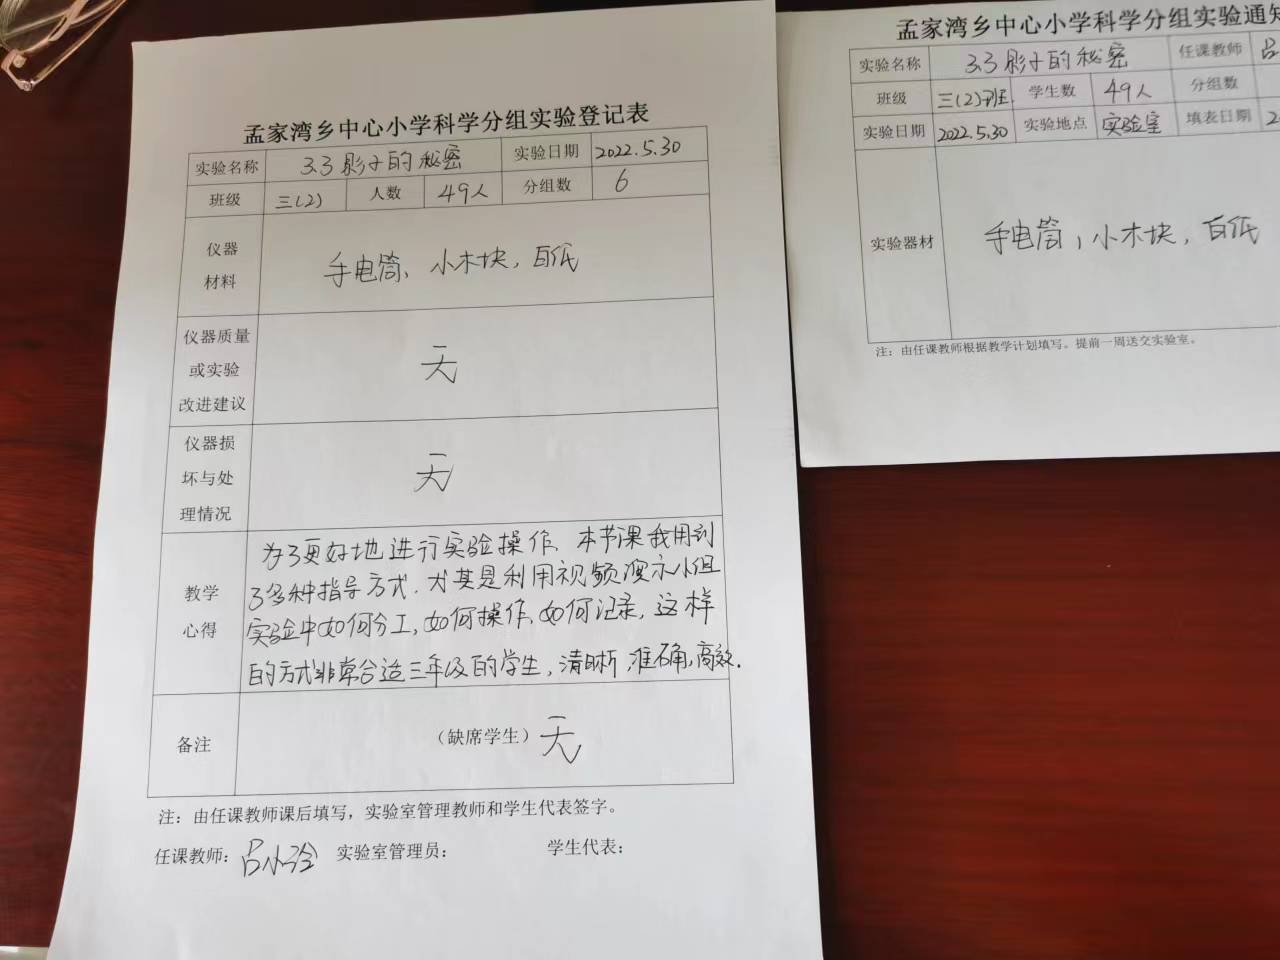 孟家湾乡中心小学科学分组实验登记表
实验名称 3.3影子的秘密 实验日期 2022.5.30
班级 三(2) 人数 49人 分组数 6
仪器
材料
手电筒、小木块，白纸
仪器质量
或实验
改进建议
无
仪器损
坏与处
理情况
无
教学
心得
为了更好地进行实验操作、本节课我用到
了多种指导方式，尤其是利用视频演示小组
实验中如何分工，如何操作，如何记录，这样
的方式非常合适三年级的学生，清晰，准确，高效.
备注 (缺席学生) 无
注：由任课教师课后填写，实验室管理教师和学生代表签字。
任课教师: 吕小 实验室管理员: 学生代表:
孟家湾乡中心小学科学分组实验通知
实验名称 3.3影子的秘密 任课教师 吕
班级 三(2)班 学生数 49人 分组数
实验日期 2022.5.30 实验地点 实验室 填表日期
实验器材 手电筒，小木块，白纸
注：由任课教师根据教学计划填写。提前一周送交实验室。